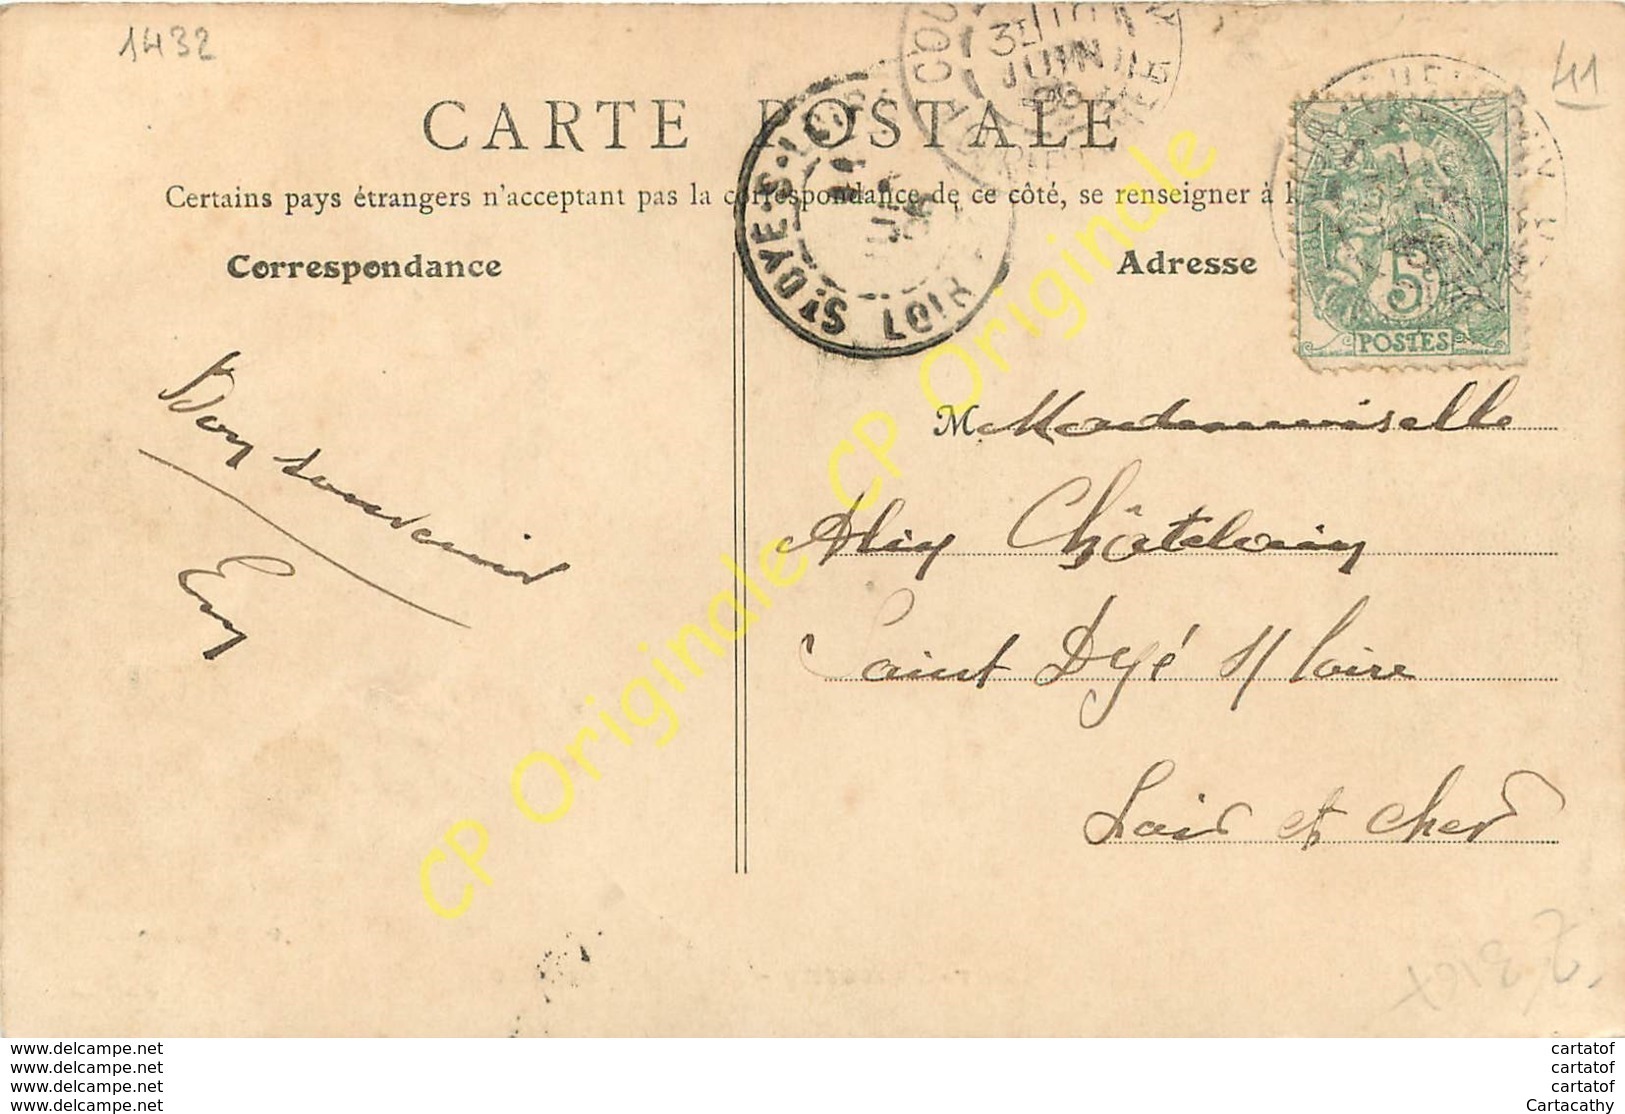 1432
41
CARTE POSTALE
Certains pays étrangers n'acceptant pas la correspondance de ce côté, se renseigner à l
Correspondance
Adresse
ST DYE-S-LOIRE
LOIR
JUIN
LA COU
JUIN
5
POSTES
Bon souvenir
M Mademoiselle
Alix Châtelain
Saint Dyé s/ Loire
Loir et Cher
CP Originale CP Originale CP Originale
www.delcampe.net
www.delcampe.net
www.delcampe.net
www.delcampe.net
cartatof
cartatof
cartatof
Cartacathy